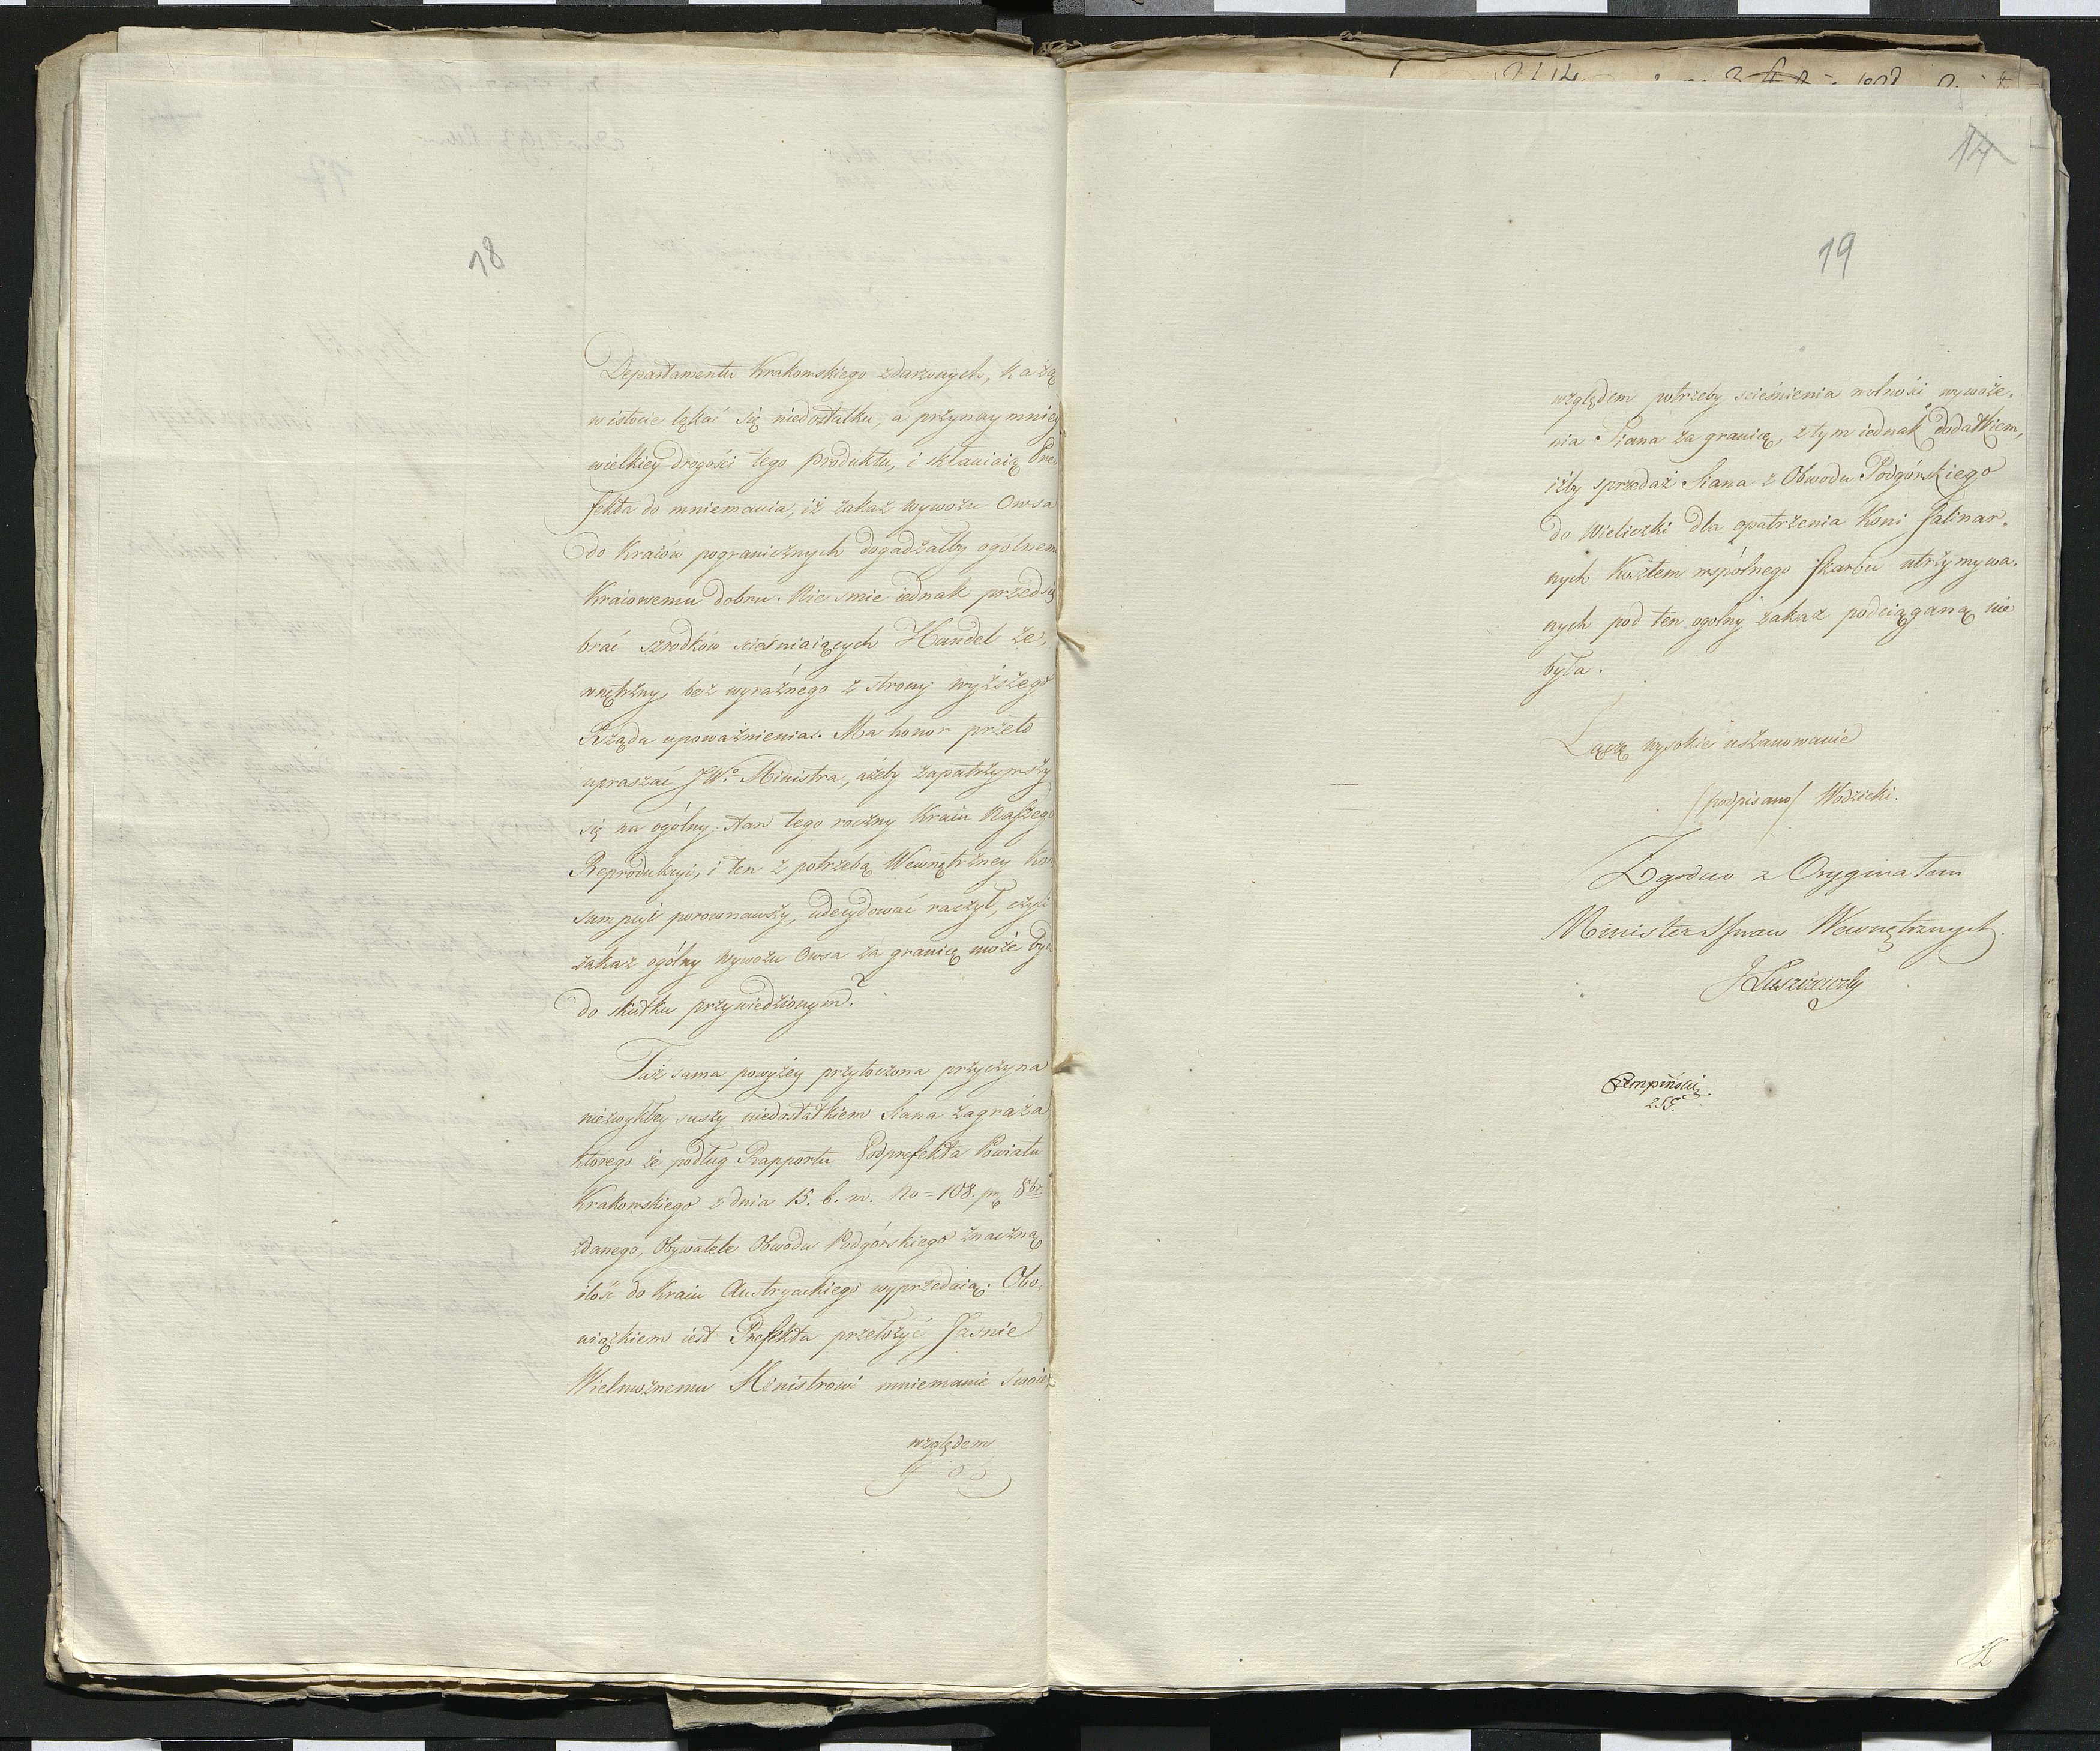 18
Departamentu Krakowskiego zdarzonych, każą
w istocie lękać się niedostatku, a przynaymniey
wielkiey drogości tego produktu, i skłaniaią Pre-
fekta do mniemania, iż zakaz wywozu Owsa
do Kraiów pogranicznych dogadzałby ogólnem
Kraiowemu dobru. Nie smie iednak przedsię
brać szrodków scieśniaiących Handel ze-
wnętrzny, bez wyraźnego z strony wyższego
Rządu upoważnienia. Ma honor przeto
upraszać JWo Ministra, ażeby zapatrzywszy
się na ogólny stan tego roczny Kraiu Naszego
Reprodukcyi, i ten z potrzebą Wewnętrzney Kon
sumpcyi porownawszy, udecydować raczył, czyli
zakaz ogólny wywozu Owsa za granicę może być
do skutku przywiedzionym?
Taż sama powyżey przytoczona przyczyna
niezwykłey suszy niedostatkiem Siana zagraża
którego że podług Rapportu Podprefekta Powiatu
Krakowskiego z dnia 15. b. m. No = 108. 8br
zdanego, Obywatele Obwodu Podgórskiego znaczną
ilość do Kraiu Austryackiego wyprzedaią. Obo-
wiązkiem iest Prefekta przełożyć Jasnie
Wielmożnemu Ministrowi mniemanie swoie
względem
14
19
względem potrzeby scieśnienia wolności wywoże-
nia Siana za granicę, z tym iednak dodatkiem,
iżby sprzedaż Siana z Obwodu Podgórskiego
do Wieliczki dla opatrzenia Koni Salinar-
nych Kosztem wspólnego Skarbu utrzymywa-
nych pod ten ogolny zakaz podciąganą nie
była.
Łączę wysokie uszanowanie
/podpisano/ Wodzicki.
Zgodno z Oryginałem
Minister Spraw Wewnętrznych.
JŁuszczewski